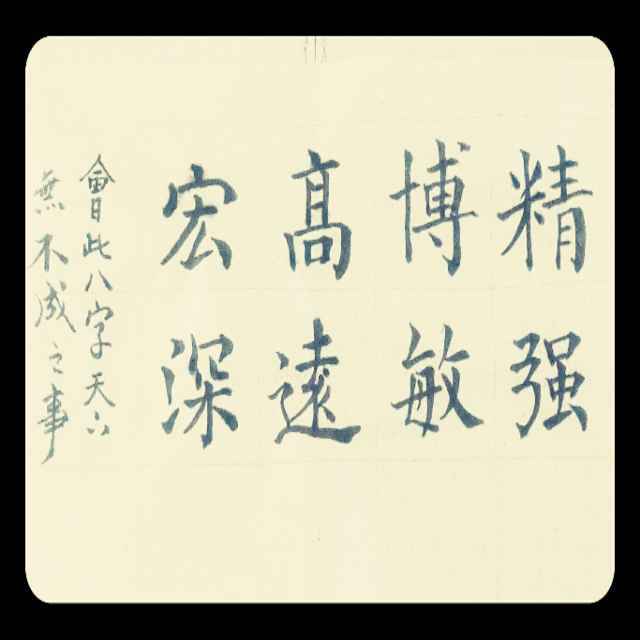 精强
博敏
髙遠
宏深
會此八字天下
無不成之事